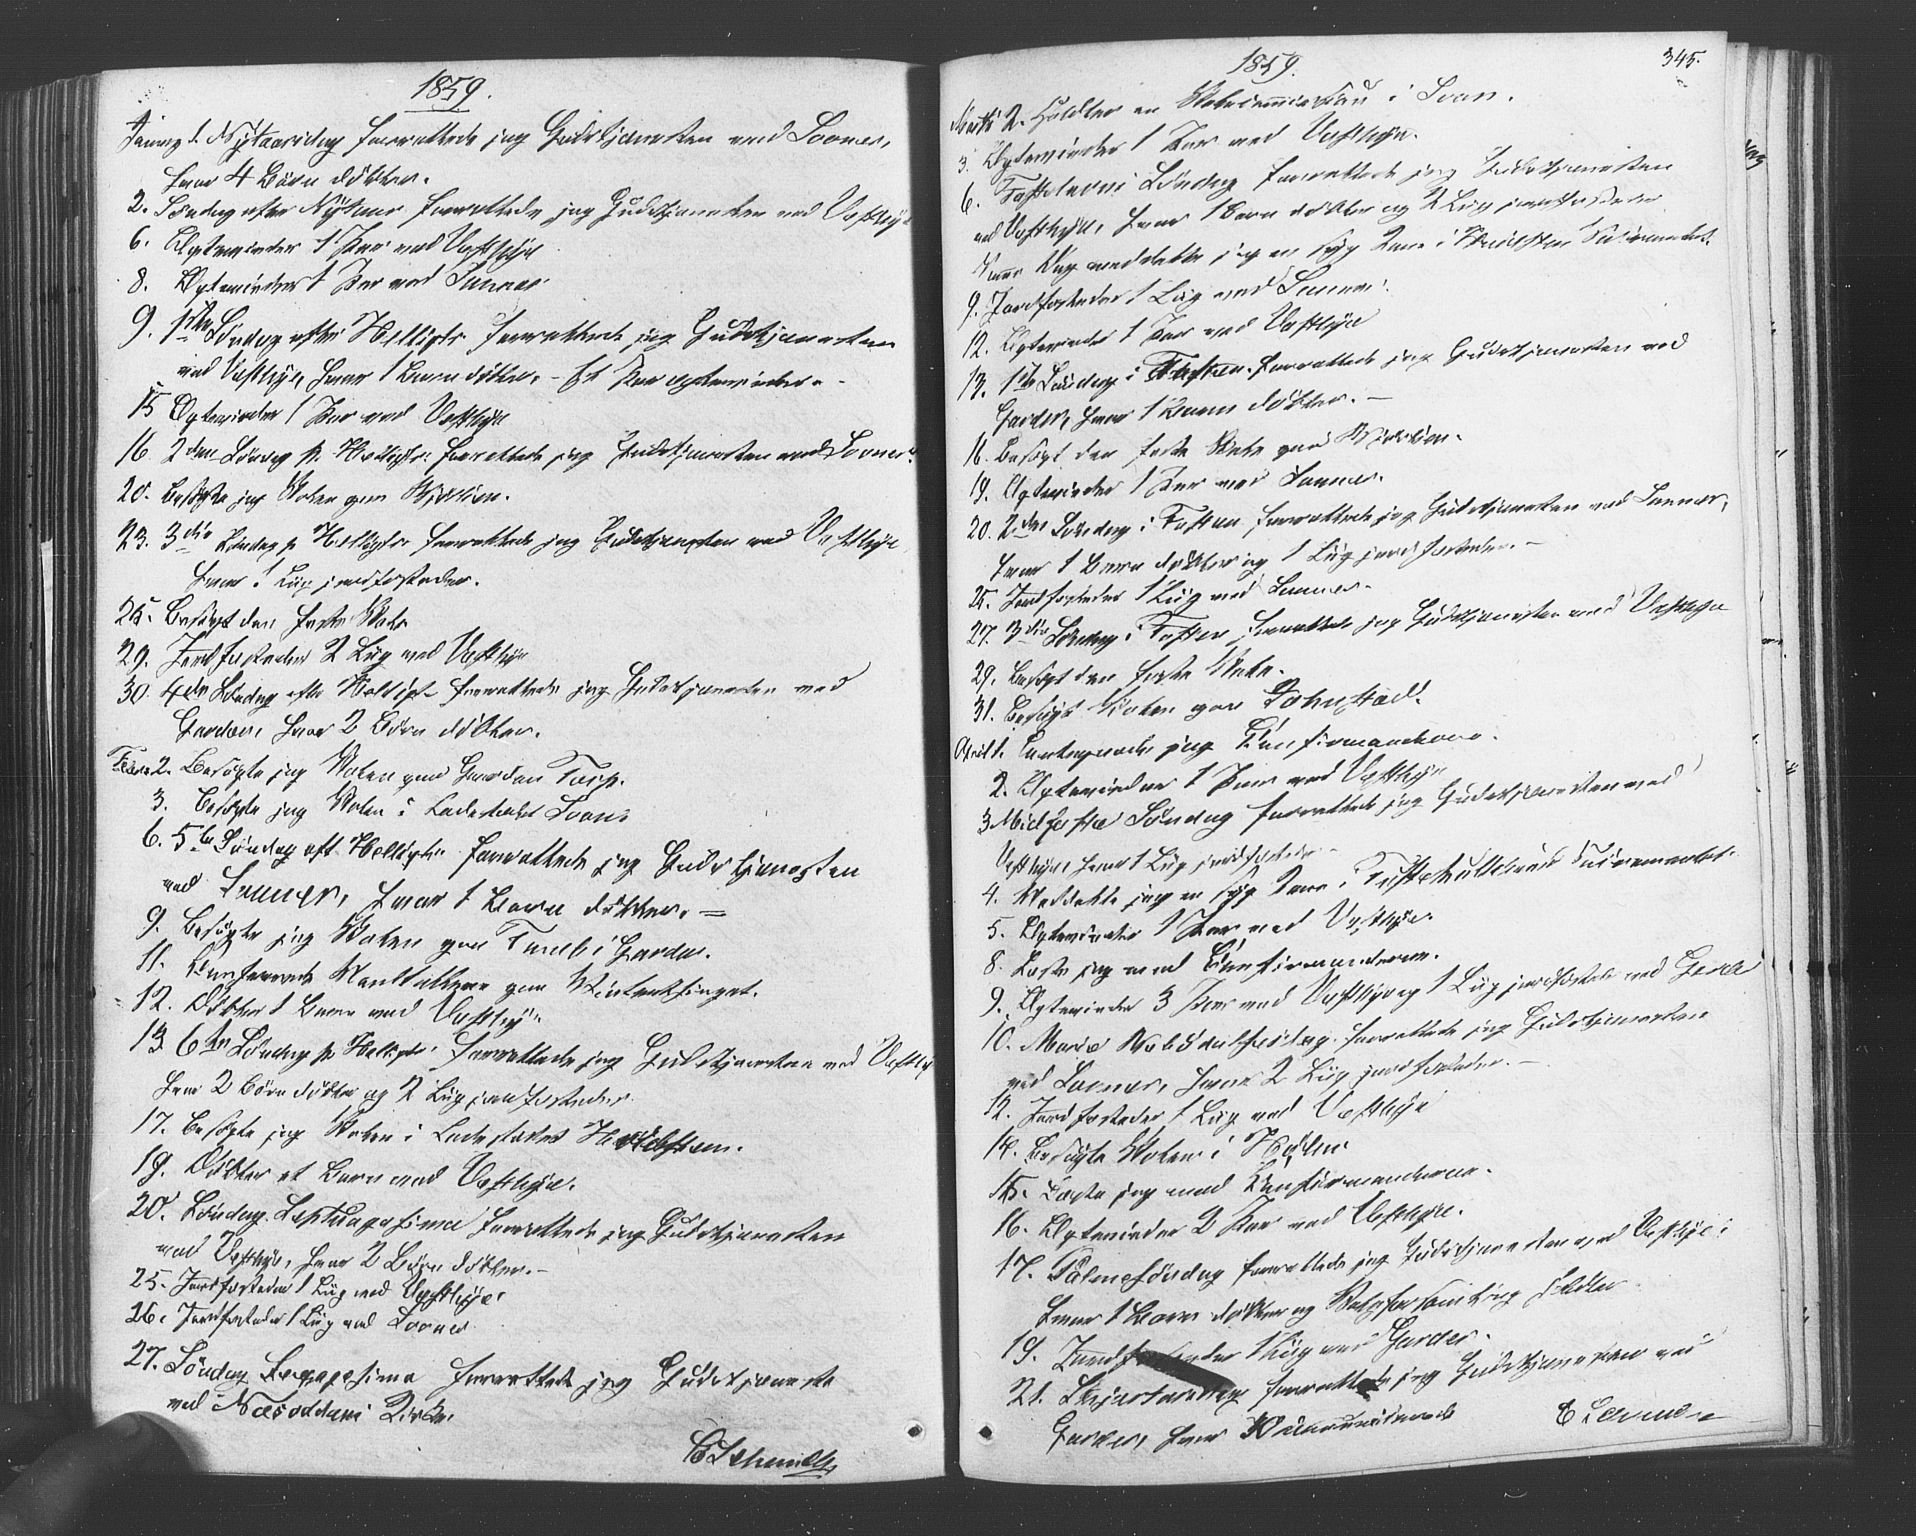 1859.
Januar 1. Nytaarsdag forrettede jeg Gudstjenesten ved Sooner,
hvor 4 Børn døbtes.
2. Søndag efter Nytaar forrettede jeg Gudstjenesten ved Vestby
6. Ægtevieder 1 Par ved Vestbye
8. Ægtevieder 1 Par ved Sooner
9. 1ste Søndag efter Helligtr forrettede jeg Gudstjenesten
ved Vestbye, hvor 1 Barn døbtes, – Et Par ægtevieder. –
15 Ægtevieder 1 Par ved Vestbye
16 2den Søndag p. Helligtr: forrettede jeg Gudstjenesten ved Sooner.
20. Besøgte jeg Skolen paa
23. 3die Søndag p Helligtr forrettede jeg Gudstjenesten ved Vestbye
hvor 1 Liig jordfæstedes.
25. Besøgt den faste Skole
29. Jordfæstedes 2 Liig ved Vestbye
30. 4de Søndag efter Helligtr forrettede jeg Gudstjenesten ved
Garder, hvor 2 Børn døbtes.
Febr 2. Besøgte jeg Skolen paa Gaarden Torp.
3. Besøgte jeg Skolen i Ladestedet Soon
6. 5te Søndag eft Helligtr forrettede jeg Gudstjenesten
ved Sooner, hvor 1 Barn døbtes. –
9. Besøgte jeg Skolen paa i Garder.
11. paa Vintertinget.
12. Døbtes 1 Barn ved Vestby
13 6te Søndag p Helligtr forrettede jeg Gudstjenesten ved Vestby
hvor 2 Børn døbtes og 2 Liig jordfæstedes
17. Besøgte jeg Skolen i Ladestedet Hvidsteen.
19. Døbtes et Barn ved Vestbye.
20. Søndag Septuagesima forrettede jeg Gudstjenesten
ved Vestbye, hvor 2 Børn døbtes. –
25. Jordfæstedes 1 Liig ved Vestbye
26. Jordfæstedes 1 Liig ved Sooner
27. Søndag Sexagesima forrettede jeg Gudstjeneste
ved Næsoddens Kirke.
345.
1859.
Marts 2. Holdtes en i Soon.
3. Ægtevieder 1 Par ved Vestbye.
6. Fastelavns Søndag forrettede jeg Gudstjenesten
ved Vestbye, hvor 1 Barn døbtes og 2 Liig jordfæstedes
Dag meddelte jeg en syg Kone i Hvidsten Sacramentet.
9. Jordfæstedes 1 Liig ved Sooner.
12. Ægtevieder 1 Par ved Vestbye
13. 1ste Søndag i Fasten forrettede jeg Gudstjenesten ved
Garder, hvor 1 Barn døbtes. –
16. Besøgt den faste Skole paa
19. Ægtevieder 1 Par ved Sooner.
20. 2den Søndag i Fasten forrettede jeg Gudstjenesten ved Sooner,
hvor 1 Barn døbtes og 1 Liig jordfæstedes. –
25. Jordfæstedes 1 Liig ved Sooner.
27. 3die Søndag i Fasten forrettede jeg Gudstjenesten ved Vestbye
29. Besøgt den faste Skole.
31. Besøgt Skolen paa
April 1. jeg Confirmanderne.
2. Ægtevieder 1 Par ved Vestbye
3 Midfaste Søndag forrettede jeg Gudstjenesten ved
Vestbye, hvor 1 Liig jordfæstedes –
4. Meddelte jeg en syg Kone i Sacramentet.
5. Ægtevieder 1 Par ved Vestbye.
8. Læste jeg med Confirmanderne.
9. Ægtevieder 3 Par ved Vestbye og 1 Liig jordfæstedes ved
10. Mariæ Bebudelsesdag forrettede jeg Gudstjenesten
ved Sooner, hvor 2 Liig jordfæstedes. –
12. Jordfæstedes 1 Liig ved Vestbye
14. Besøgte Skolen i
15. Læste jeg med Confirmanderne.
16. Ægtevieder 2 Par ved Vestbye.
17. Palmesøndag forrettede jeg Gudstjenesten ved Vestbye
hvor 1 Barn døbtes og holdtes
19. Jordfæstedes 1 Liig ved Garder.
21. Skjærtorsdag forrettede jeg Gudstjenesten ved
Garder, hvor